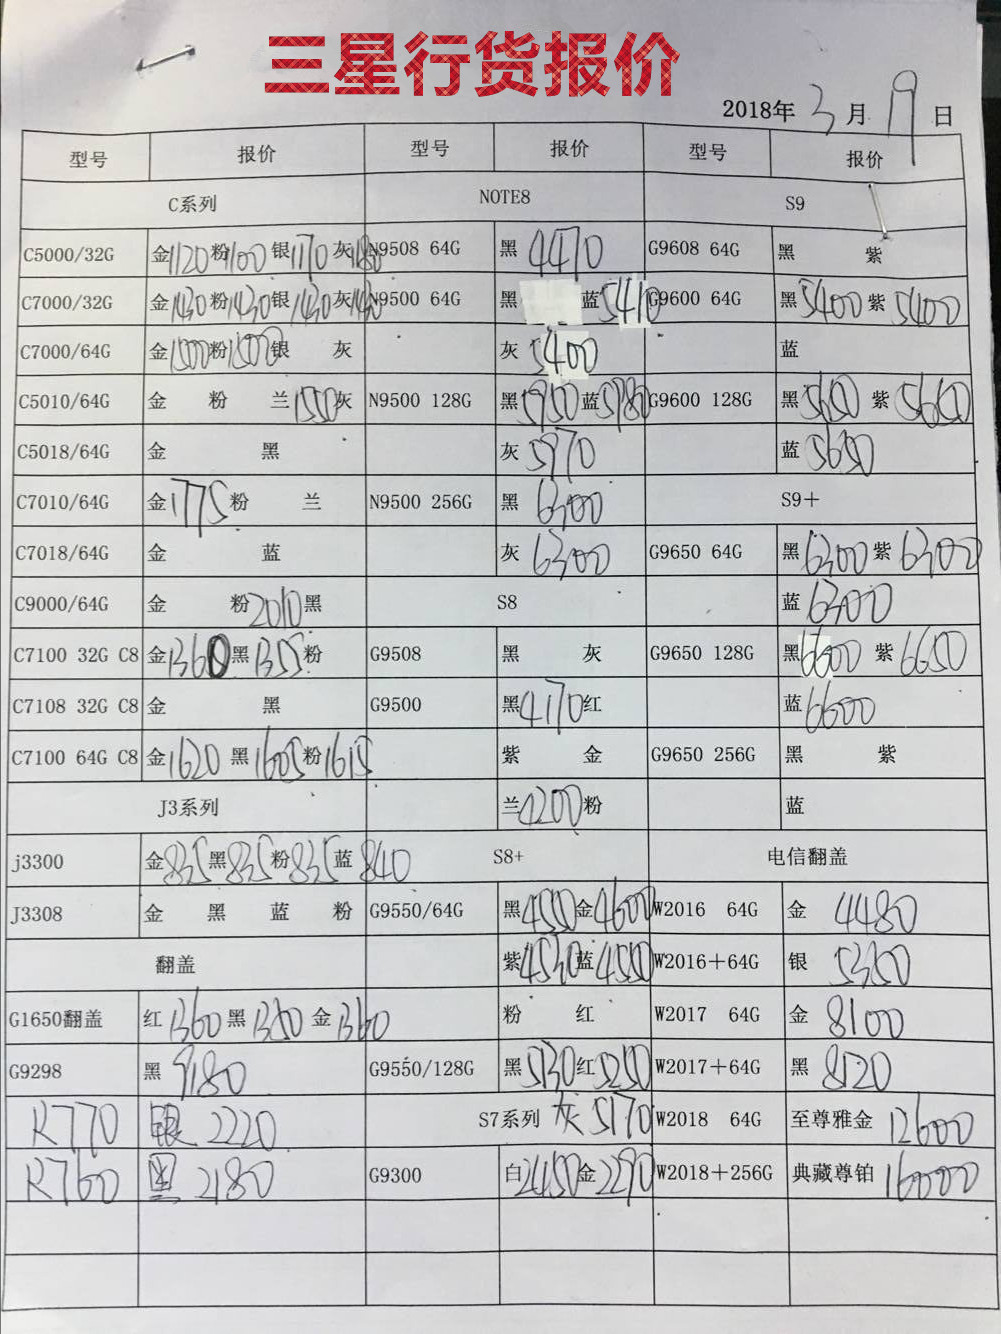 三星行货报价
2018年3月19日
型号 报价 型号 报价 型号 报价
C系列 NOTE8 S9
C5000/32G 金1120 粉1100 银1170 灰1180 N9508 64G 黑4470 G9608 64G 黑 紫
C7000/32G 金1430 粉1430 银1430 灰1430 N9500 64G 黑 蓝5410 G9600 64G 黑5400 紫5400
C7000/64G 金1500 粉1500 银 灰 灰5400 蓝
C5010/64G 金 粉 兰1550 灰 N9500 128G 黑5950 蓝5980 G9600 128G 黑5650 紫5660
C5018/64G 金 黑 灰5970 蓝5650
C7010/64G 金1775 粉 兰 N9500 256G 黑6300 S9+
C7018/64G 金 蓝 灰6300 G9650 64G 黑6300 紫6300
C9000/64G 金 粉2010 黑 S8 蓝6300
C7100 32G C8 金1360 黑1355 粉 G9508 黑 灰 G9650 128G 黑6600 紫6650
C7108 32G C8 金 黑 G9500 黑4170 红 蓝6600
C7100 64G C8 金1620 黑1605 粉1615 紫 金 G9650 256G 黑 紫
J3系列 兰4200 粉 蓝
j3300 金835 黑835 粉835 蓝840 S8+ 电信翻盖
J3308 金 黑 蓝 粉 G9550/64G 黑4550 金4600 W2016 64G 金 4480
翻盖 紫4530 蓝4550 W2016+64G 银 5350
G1650翻盖 红1360 黑1350 金1360 粉 红 W2017 64G 金 8100
G9298 黑 9180 G9550/128G 黑5130 红5250 W2017+64G 黑 8120
R770 银 2220 S7系列 灰 5170 W2018 64G 至尊雅金 12600
R760 黑 2180 G9300 白2450 金2290 W2018+256G 典藏尊铂 16000